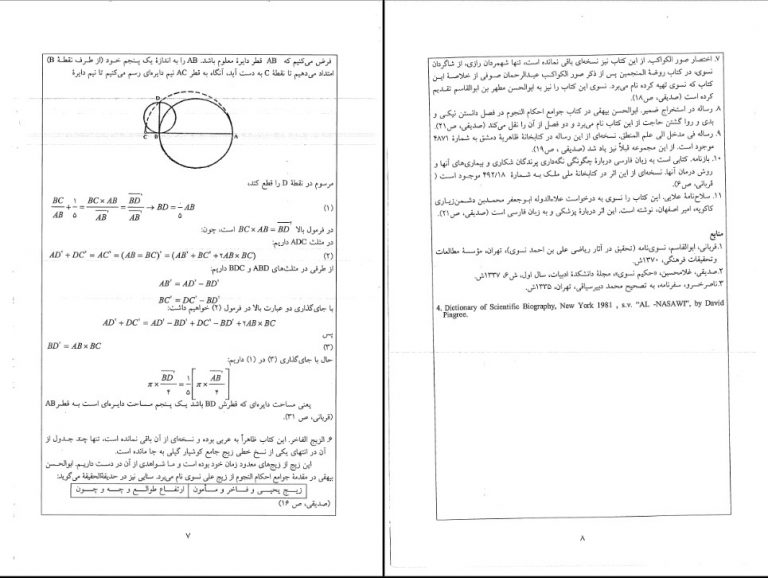 فرض می‌کنیم که AB قطر دایرهٔ معلوم باشد. AB را به اندازهٔ یک پنجم خود (از طرف نقطهٔ B)
امتداد می‌دهیم تا نقطهٔ C به دست آید، آنگاه به قطر AC نیم دایره‌ای رسم می‌کنیم تا نیم دایرهٔ
D
C B A
مرسوم در نقطهٔ D را قطع کند،
(۱)
در فرمول بالا BC × AB = BD² است، چون:
در مثلث ADC داریم:
AD² + DC² = AC² = (AB + BC)² = (AB² + BC² + ۲AB × BC) (۲)
از طرفی در مثلث‌های ABD و BDC داریم:
AB² = AD² − BD²
BC² = DC² − BD²
با جای‌گذاری دو عبارت بالا در فرمول (۲) خواهیم داشت:
AD² + DC² = AD² − BD² + DC² − BD² + ۲AB × BC
پس
BD² = AB × BC (۳)
حال با جای‌گذاری (۳) در (۱) داریم:
یعنی مساحت دایره‌ای که قطرش BD باشد یک پنجم مساحت دایره‌ای است به قطر AB
(قربانی، ص ۳۱).
۶. الزیج الفاخر. این کتاب ظاهراً به عربی بوده و نسخه‌ای از آن باقی نمانده است، تنها چند جدول از
آن در انتهای یکی از نسخ خطی زیج جامع کوشیار گیلی به جا مانده است.
این زیج از زیج‌های معدود زمان خود بوده است و ما شواهدی از آن در دست داریم. ابوالحسن
بیهقی در مقدمهٔ جوامع احکام النجوم از زیج علی نسوی نام می‌برد. سنایی نیز در حدیقةالحقیقة می‌گوید:
زیـج یحیـی و فـاخر و مـأمون ارتفـاع طوالـع و چـه و چـون
(صدیقی، ص ۱۶)
۷
۷. اختصار صور الکواکب. از این کتاب نیز نسخه‌ای باقی نمانده است، تنها شهمردان رازی، از شاگردان
نسوی، در کتاب روضة المنجمین پس از ذکر صور الکواکب عبدالرحمان صوفی از خلاصهٔ این
کتاب که نسوی تهیه کرده نام می‌برد. نسوی این کتاب را نیز به ابوالحسن مطهر بن ابوالقاسم تقدیم
کرده است (صدیقی، ص۱۸).
۸. رساله در استخراج ضمیر. ابوالحسن بیهقی در کتاب جوامع احکام النجوم در فصل دانستن نیکی و
بدی و روا گشتن حاجت از این کتاب نام می‌برد و دو فصل از آن را نقل می‌کند (صدیقی، ص۲۱).
۹. رساله فی مدخل الی علم المنطق. نسخه‌ای از این رساله در کتابخانهٔ ظاهریهٔ دمشق به شمارهٔ ۴۸۷۱
موجود است. از این مجموعه قبلاً نیز یاد شد (صدیقی ، ص۱۹).
۱۰. بازنامه. کتابی است به زبان فارسی دربارهٔ چگونگی نگه‌داری پرندگان شکاری و بیماری‌های آنها و
روش درمان آنها. نسخه‌ای از این اثر در کتابخانهٔ ملی ملک به شمارهٔ ۴۹۲/۱۸ موجود است (
قربانی، ص۶).
۱۱. سلاح‌نامهٔ علایی. این کتاب را نسوی به درخواست علاءالدوله ابوجعفر محمدبن دشمن‌زیاری
کاکویه، امیر اصفهان، نوشته است. این اثر دربارهٔ پزشکی و به زبان فارسی است (صدیقی، ص۲۱).
منابع
۱. قربانی، ابوالقاسم، نسوی‌نامه (تحقیق در آثار ریاضی علی بن احمد نسوی)، تهران، مؤسسهٔ مطالعات
وتحقیقات فرهنگی، ۱۳۷۰ش.
۲. صدیقی، غلامحسین، «حکیم نسوی»، مجلهٔ دانشکدهٔ ادبیات، سال اول، ش۶، ۱۳۳۷ش.
۳. ناصرخسرو، سفرنامه، به تصحیح محمد دبیرسیاقی، تهران، ۱۳۳۵ش.
4. Dictionary of Scientific Biography, New York 1981 , s.v. "AL -NASAWI", by David
Pingree.
۸